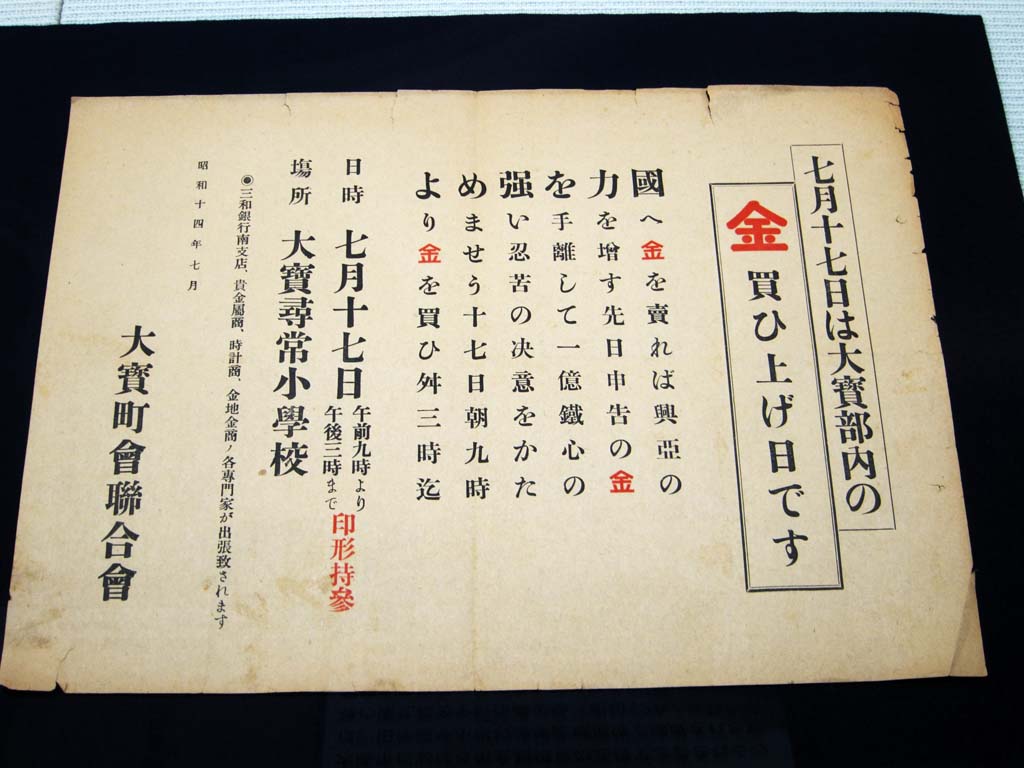 七月十七日は大寶部内の
金買ひ上げ日です
國へ金を賣れば興亞の
力を增す先日申告の金
を手離して一億鐵心の
强い忍苦の決意をかた
めませう十七日朝九時
より金を買ひ舛三時迄
日時 七月十七日 午前九時より 午後三時まで 印形持參
塲所 大寶尋常小學校
◉三和銀行南支店、貴金屬商、時計商、金地金商ノ各專門家が出張致されます
昭和十四年七月
大寶町會聯合會